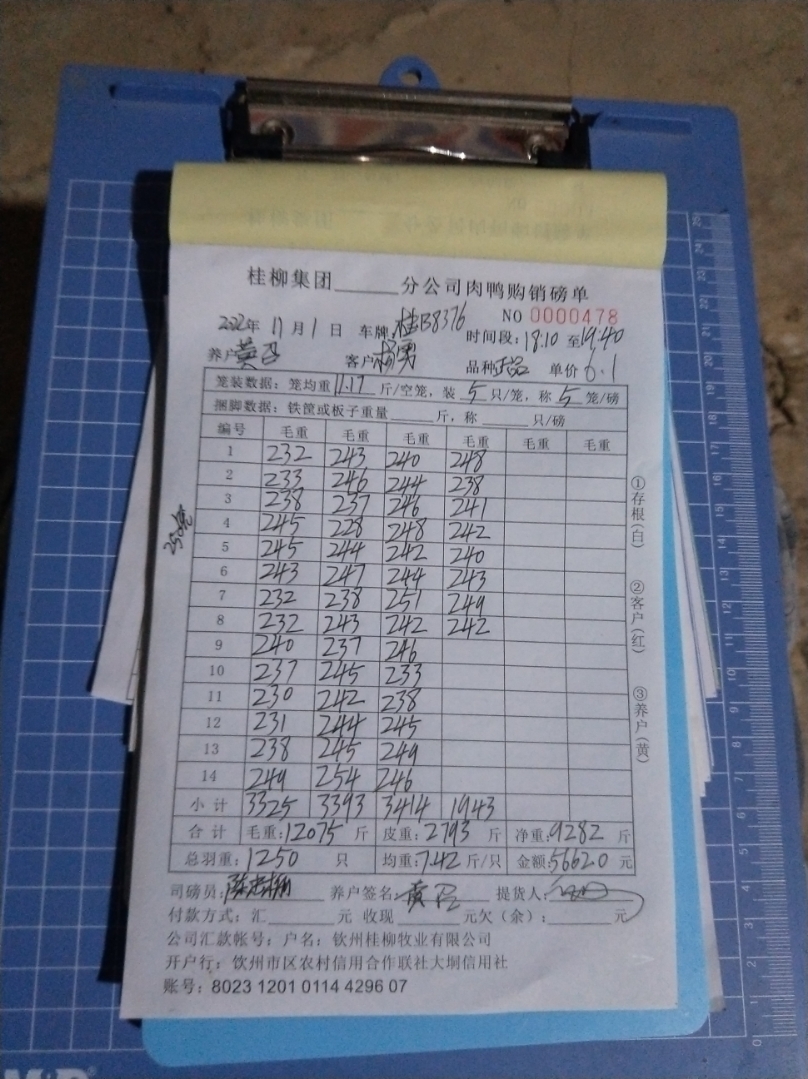 桂柳集团______分公司肉鸭购销磅单
NO 0000478
2022年 11月1日 车牌:桂B8376 时间段:18:10至19:40
养户 黄 客户 杨勇 品种 正品 单价 6.1
笼装数据:笼均重11.17斤/空笼,装5只/笼,称5笼/磅
捆脚数据:铁筐或板子重量______斤,称______只/磅
编号 毛重 毛重 毛重 毛重 毛重 毛重
1 232 243 240 248
2 233 246 244 238
3 238 237 246 241
4 245 228 248 242
5 245 244 242 240
6 243 247 244 243
7 232 238 251 249
8 232 243 242 242
9 240 237 246
10 237 245 233
11 230 242 238
12 231 244 245
13 238 245 249
14 249 254 246
小计 3325 3393 3414 1943
合计 毛重:12075斤 皮重:2793斤 净重:9282斤
总羽重:1250 只 均重:7.42斤/只 金额:56620元
司磅员: 养户签名: 黄 提货人:
付款方式:汇______元 收现______元欠(余):______元
公司汇款帐号:户名:钦州桂柳牧业有限公司
开户行:钦州市区农村信用合作联社大垌信用社
账号:8023 1201 0114 4296 07
①存根(白)
②客户(红)
③养户(黄)
250笼